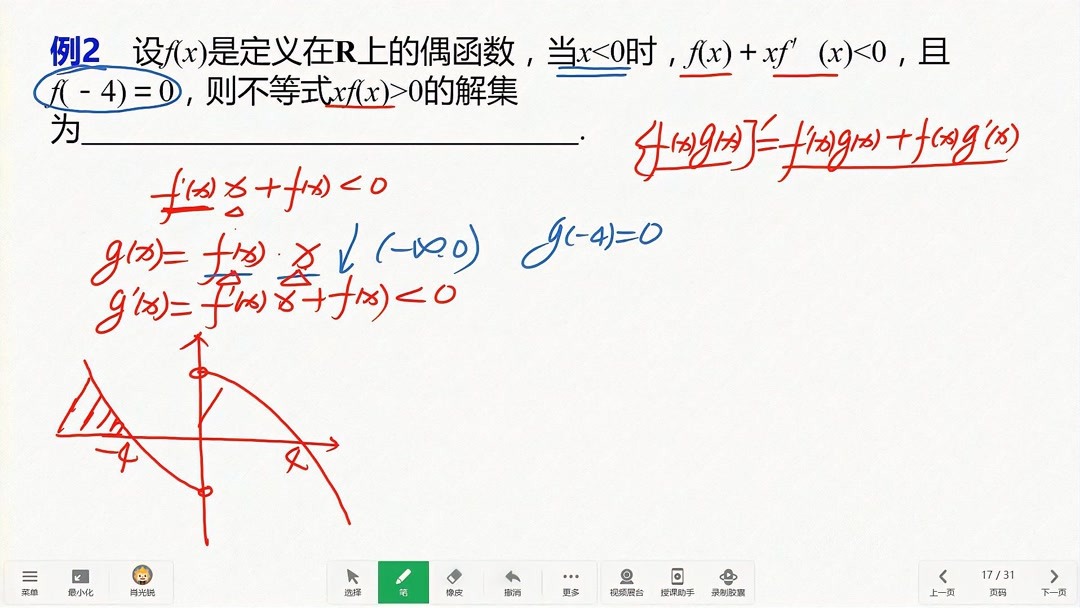 例2 设f(x)是定义在R上的偶函数，当x<0时，f(x)＋xf′(x)<0，且
f(－4)＝0，则不等式xf(x)>0的解集
为____________________.
{f(x)g(x)]′=f′(x)g(x)+f(x)g′(x)
f′(x)x+f(x)<0
g(x)=f(x)·x ↓ (-∞.0) g(-4)=0
g′(x)=f′(x)x+f(x)<0
-4 4
菜单 最小化 肖光锐 选择 笔 橡皮 撤消 更多 视频展台 授课助手 录制胶囊 上一页 17 / 31 页码 下一页